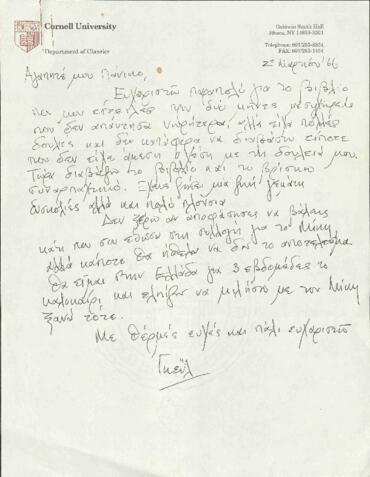 Cornell University
Department of Classics
Goldwin Smith Hall
Ithaca, NY 14853-3201
Telephone: 607/255-3354
2α Μαρτίου '96
Αγαπητέ μου
Ευχαριστώ παραπολύ για το βιβλίο
που μου έστειλες πριν δύο μήνες με συγχωρείς
που δεν απάντησα νωρίτερα, αλλά είχα πολλές
δουλειές και δεν κατάφερα να διαβάσω τίποτε
που δεν είχε άμεση σχέση με τη δουλειά μου.
Τώρα διαβάζω το βιβλίο και το βρίσκω
συναρπαστικό. Έχεις ζήσει μια ζωή γεμάτη
δυσκολίες αλλά και πολύ πλούσια
Δεν ξέρω αν αποφάσισες να βάλεις
κάτι που σου έδωσα στη συλλογή για το Μίκη
αλλά κάποτε θα ήθελα να δω το αποτέλεσμα.
Θα είμαι στην Ελλάδα για 3 εβδομάδες το
καλοκαίρι και ελπίζω να μιλήσω με τον Μίκη
ξανά τότε.
Με θερμές ευχές και πάλι ευχαριστώ
Γκέιλ